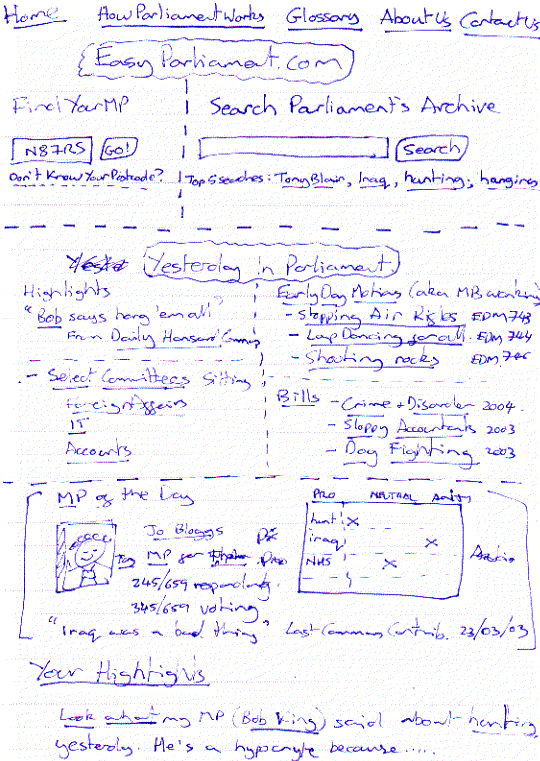 Home How Parliament Works Glossary About Us Contact Us
EasyParliament.com
Find Your MP
Search Parliament's Archive
N87RS GO!
Search
Don't Know Your Postcode?
Top 5 searches: Tony Blair, Iraq, hunting, hanging
Yesterday in Parliament
Highlights
"Bob says hang 'em all"
From Daily Hansard
Early Day Motions (aka MPs wanking)
- Stopping Air Rights EDM 743
- Lap Dancing for all. EDM 744
- Shooting rocks EDM 746
- Select Committees Sitting
Foreign Affairs
IT
Accounts
Bills - Crime + Disorder 2004.
- Sloppy Accountants 2003
- Dog Fighting 2003
MP of the Day
Jo Bloggs
MP for
245/659 responding
345/659 voting
"Iraq was a bad thing"
PRO NEUTRAL ANTI
hunt X
iraq X
NHS X
Last Commons Contrib. 23/03/03
Your Hightights
Look what my MP (Bob King) said about hunting
yesterday. He's a hypocryte because.....